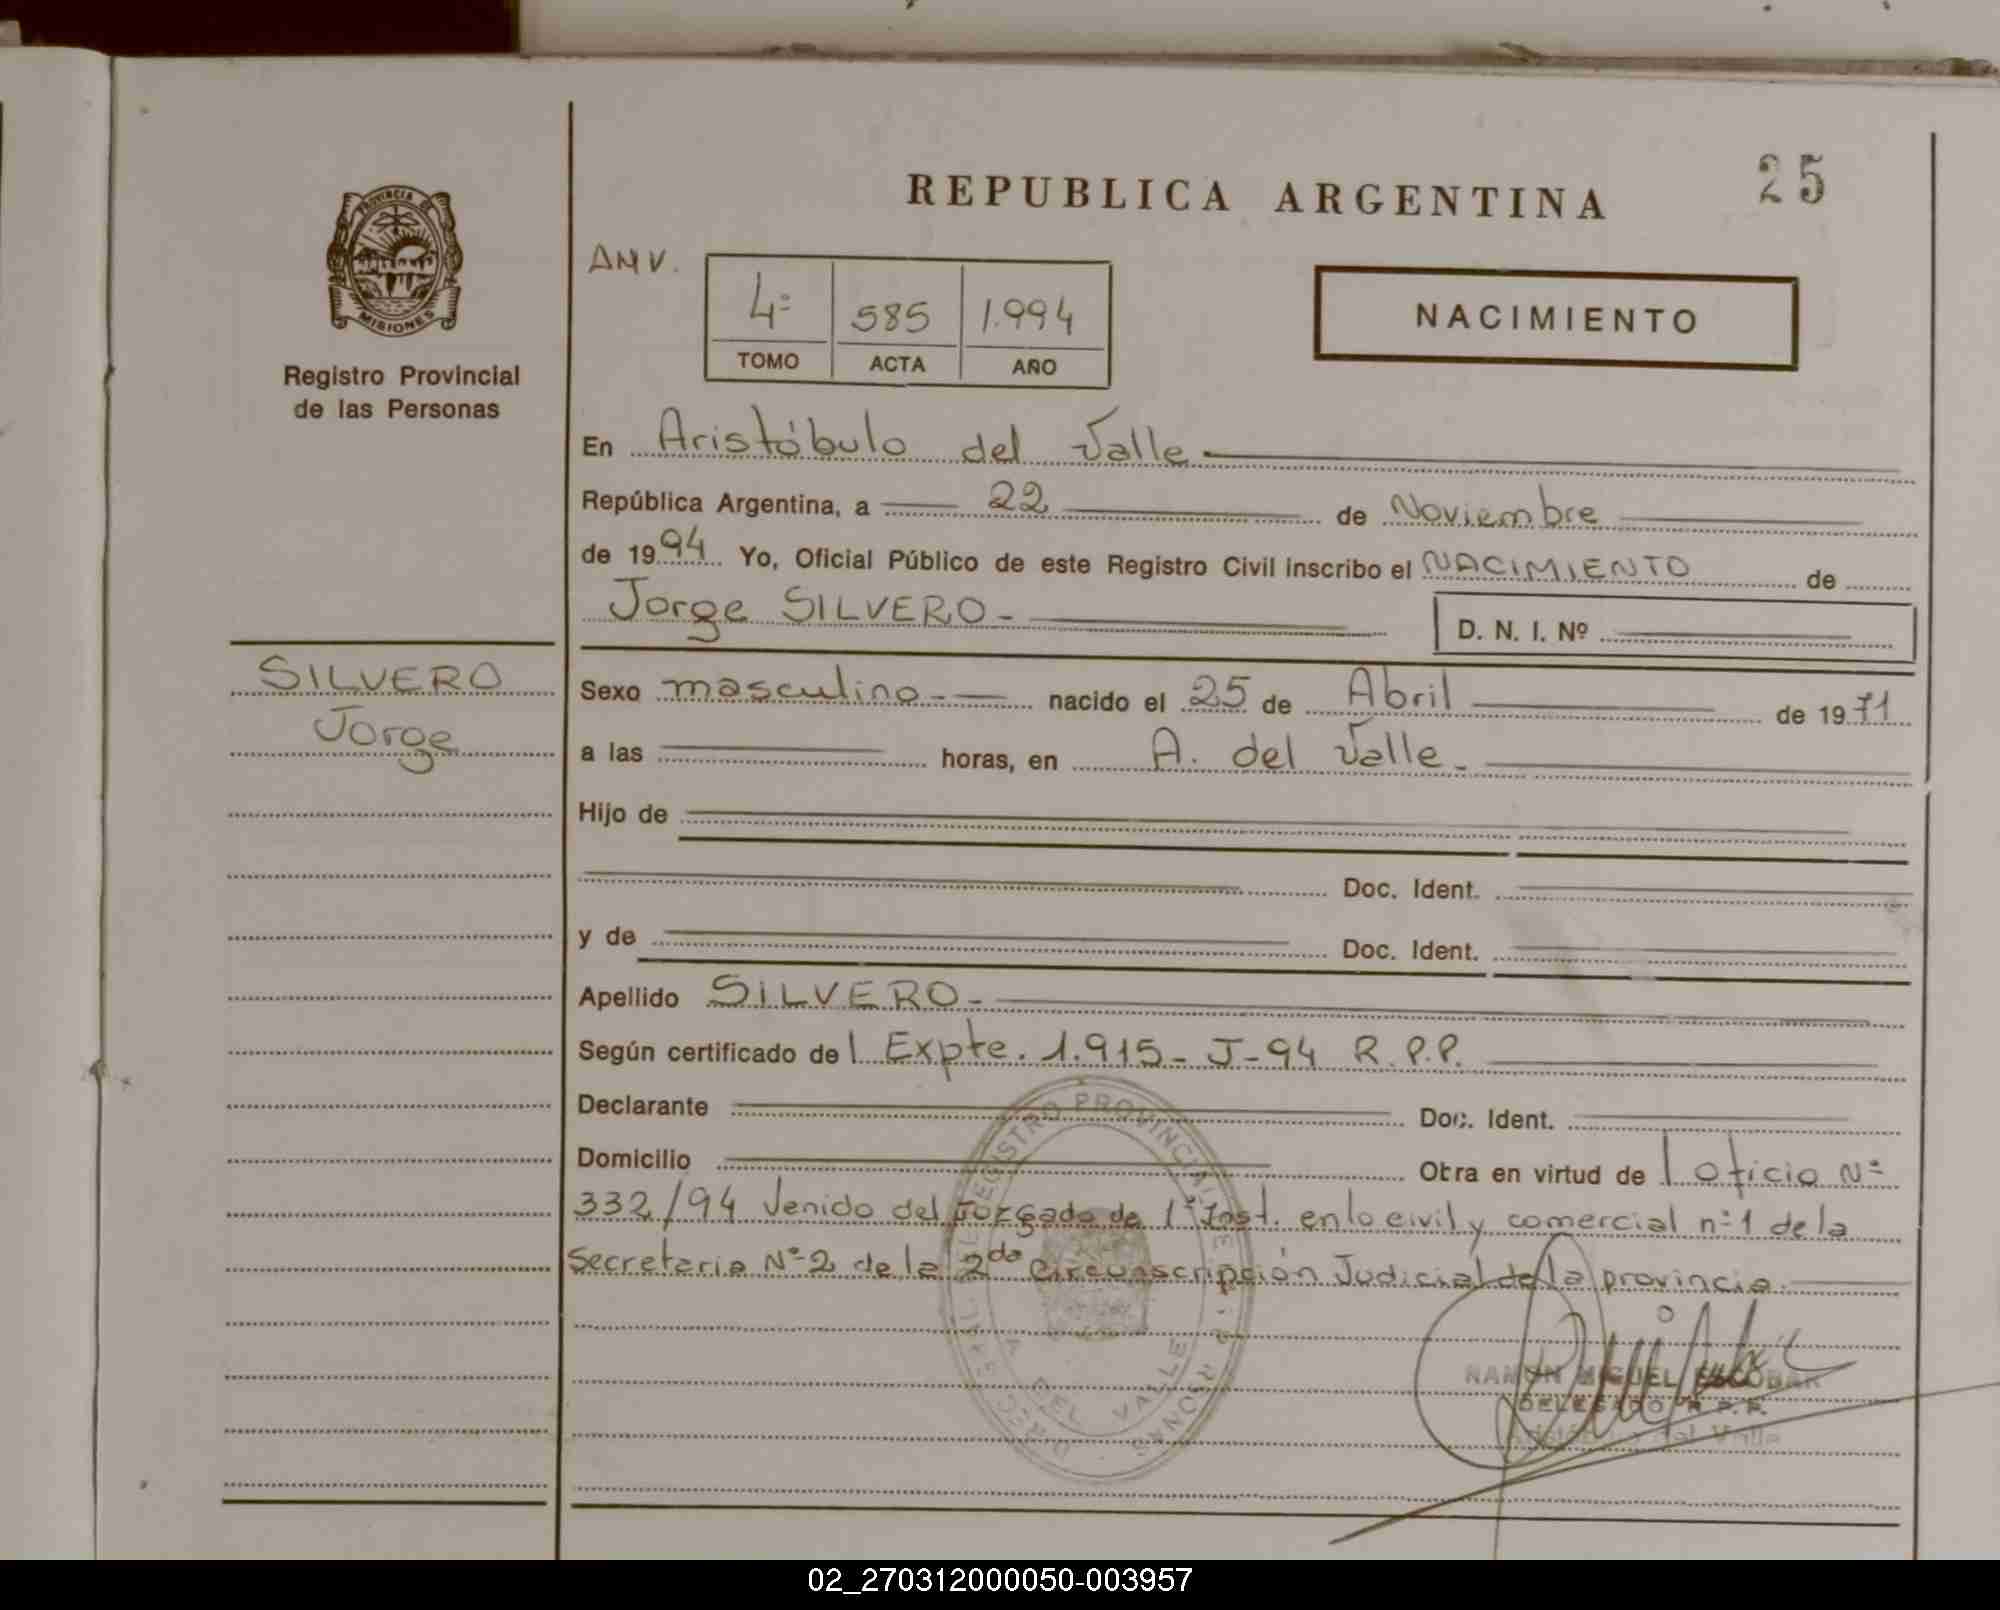 25
REPUBLICA ARGENTINA
PROVINCIA DE
MISIONES
Registro Provincial
de las Personas
ANV.
4º 585 1.994
TOMO ACTA AÑO
NACIMIENTO
En Aristóbulo del Valle
República Argentina, a 22 de Noviembre
de 1994 Yo, Oficial Público de este Registro Civil inscribo el NACIMIENTO de
Jorge SILVERO - D. N. I. Nº
SILVERO
Jorge
Sexo masculino - nacido el 25 de Abril de 1971
a las horas, en A. del Valle -
Hijo de
Doc. Ident.
y de Doc. Ident.
Apellido SILVERO -
Según certificado del Expte. 1.915 - J - 94 R.P.P.
Declarante Doc. Ident.
Domicilio Otra en virtud del oficio Nº
332/94 Venido del Juzgado de 1ª Inst. en lo civil y comercial nº 1 de la
Secretaria Nº 2 de la 2da Circunscripción Judicial de la provincia.
REGISTRO PROVINCIAL DE
A. DEL VALLE
RAMON MIGUEL ESCOBAR
DELEGADO R.P.P.
del Valle
02_270312000050-003957